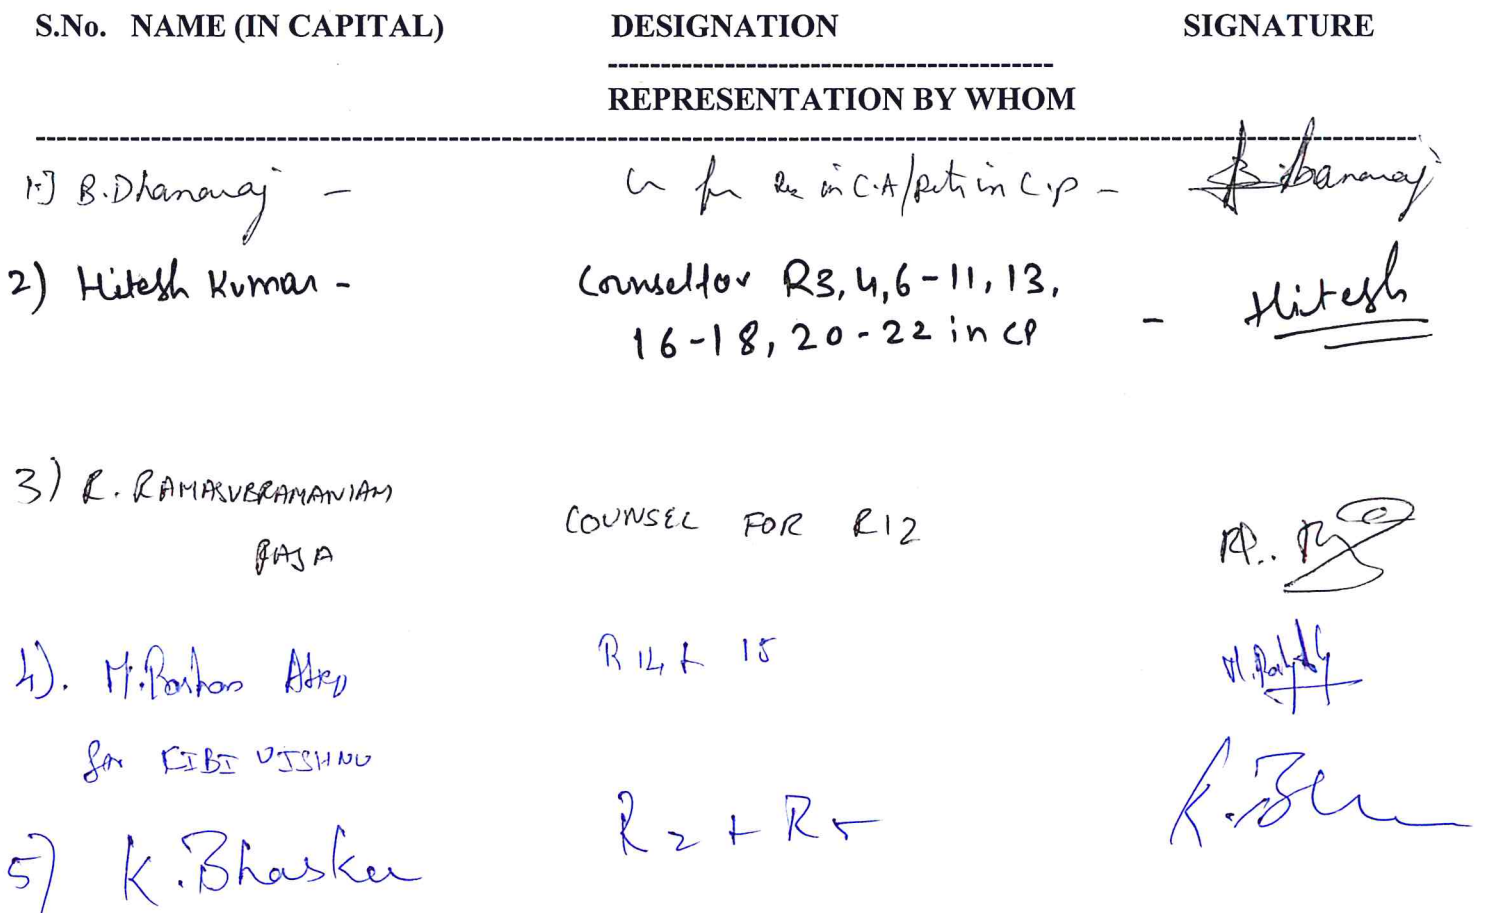 S.No. NAME (IN CAPITAL) DESIGNATION SIGNATURE
----------------------------------------
REPRESENTATION BY WHOM
----------------------------------------
1.] B. Dhanaraj - for in C.A/Petr in C.P - B. Dhanaraj
2) Hitesh Kumar - Counsel for R3, 4, 6-11, 13,
16-18, 20-22 in CP - Hitesh
3) R. RAMASUBRAMANIAM
RAJA COUNSEL FOR R12
4). R 14 + 15
for KIBI VISHNU
5) K. Bhaskar R2 + R5